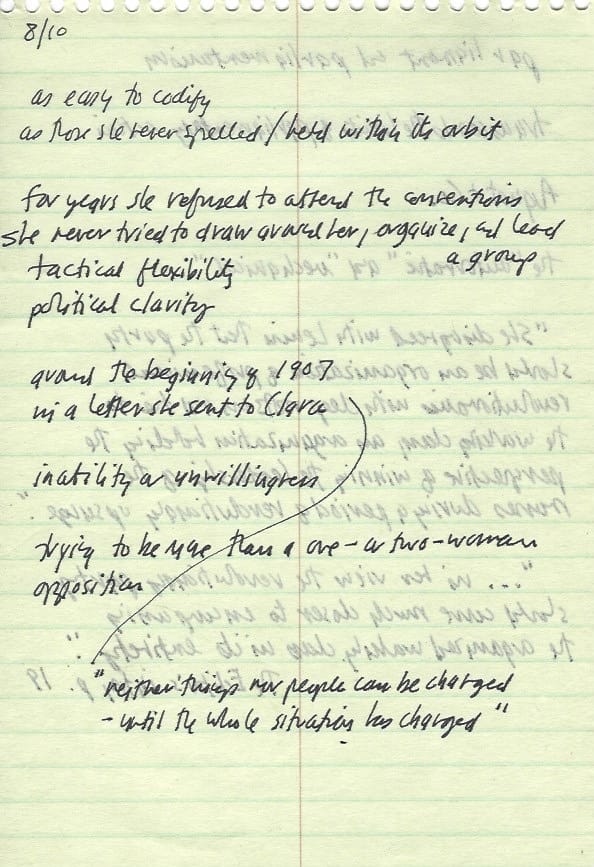 8/10
as easy to codify
as those she never spelled / held within its orbit
for years she refused to attend the conventions
she never tried to draw around her, organize, and lead
a group
tactical flexibility
political clarity
around the beginning of 1907
in a letter she sent to Clara
inability or unwillingness
trying to be more than a one – or two – woman
opposition
"neither things nor people can be changed
– until the whole situation has changed"